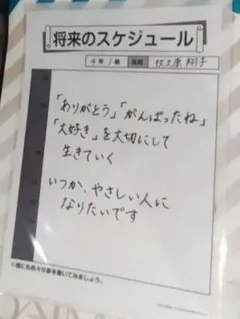 将来のスケジュール
4年 1組 名前 牧之原翔子
「ありがとう」「がんばったね」
「大好き」を大切にして
生きていく
いつか、やさしい人に
なりたいです